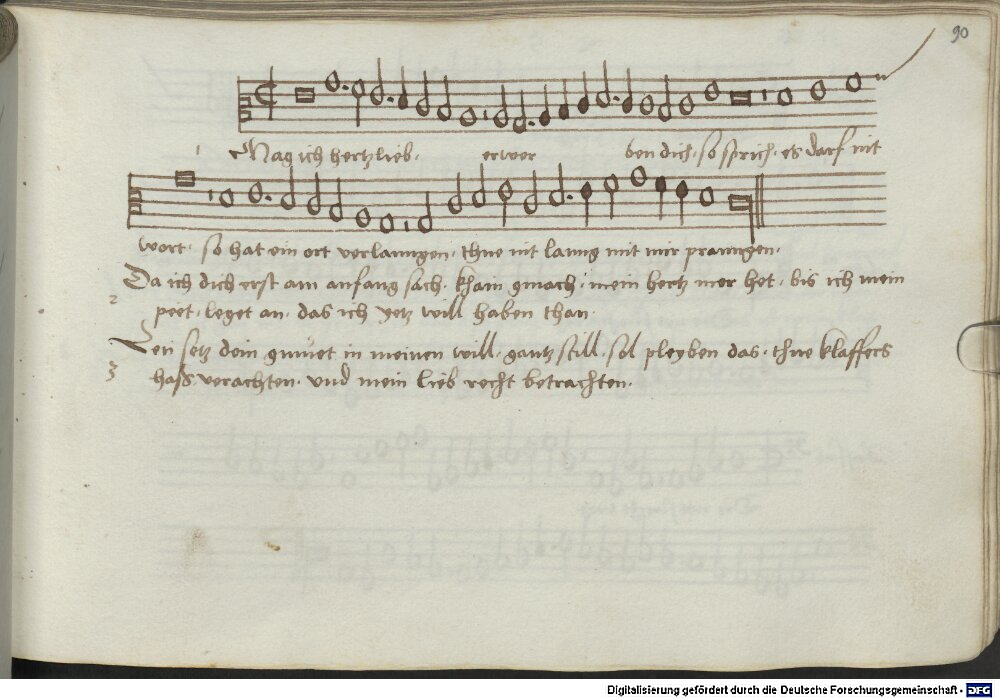 90
1 Mag ich hertzlieb · erwer ben dich · so sprich · es darf nit
wort · so hat ein ort verlanngen · thue nit lanng mit mir pranngen ·
2 Da ich dich erst am anfang sach · khain gmach · mein hertz mer het · bis ich mein
peet · leget an · das ich yetz will haben than ·
3 setz dein gmüet in meinen will · gantz still · sol pleyben das · thue klaffers
hass verachten · vnd mein lieb recht betrachten ·
Digitalisierung gefördert durch die Deutsche Forschungsgemeinschaft - DFG